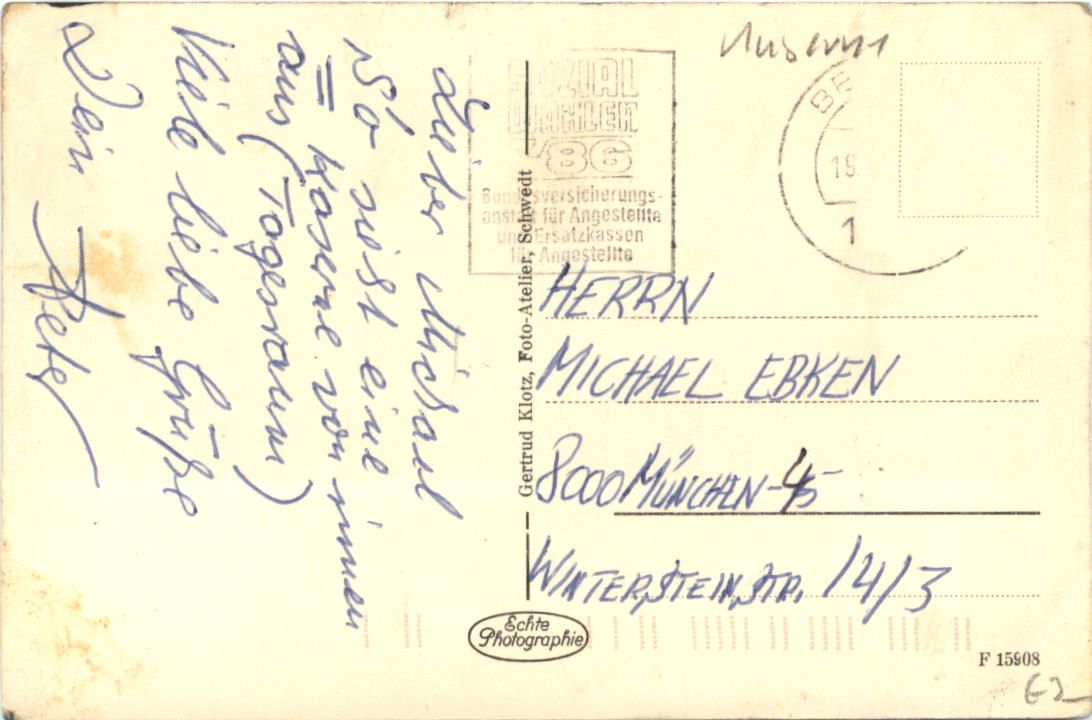 Lieber Michael
So sieht eine
= Kaserne von innen
aus (Tagesraum)
Viele liebe Grüße
Dein Peter
SOZIAL
WAHLEN
'86
Bundesversicherungs-
anstalt für Angestellte
und Ersatzkassen
für Angestellte
BE
1
Gertrud Klotz, Foto-Atelier, Schwedt
HERRN
MICHAEL EBKEN
8000 MÜNCHEN-45
WINTERSTEINSTR. 14/3
Echte
Photographie
F 15908